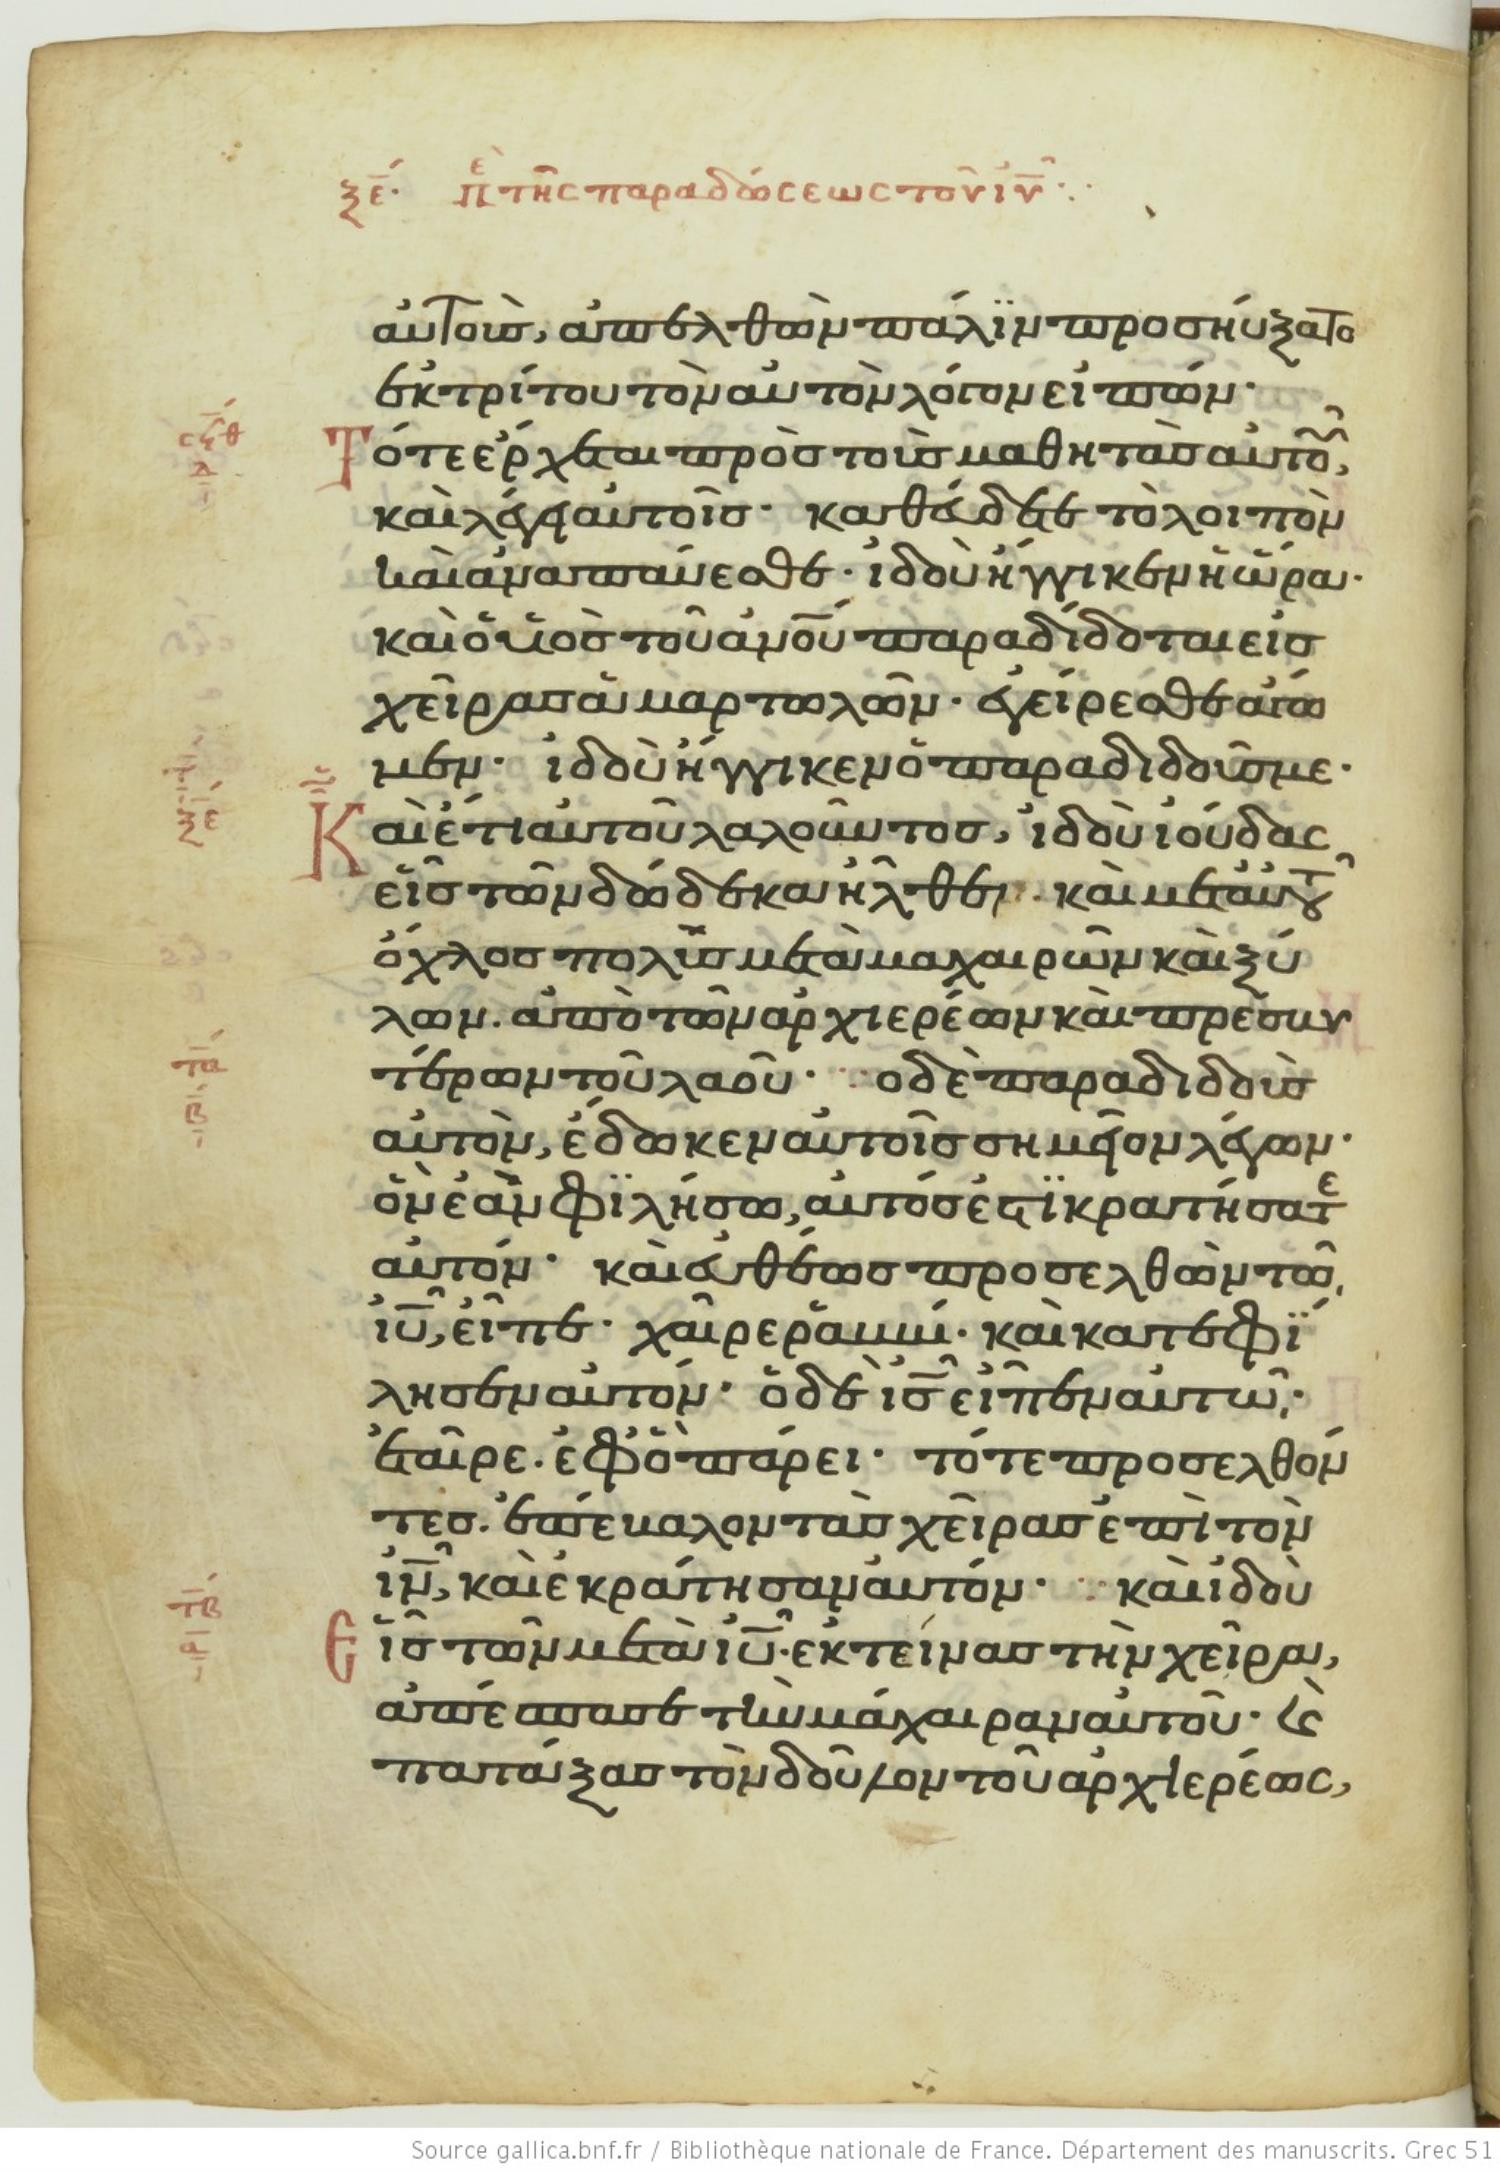 ξε΄· πε τῆς παραδόσεως τοῦ ιυ̅
αὐτοὺσ, ἀπελθὼν πάλϊν προσηύξατο
ἐκ τρίτου τὸν αὐτὸν λόγον εἰπών·
σϟθ
δ
Τότε ἔρχεται πρὸσ τοὺσ μαθητὰσ αὐτοῦ,
καὶ λέγει αὐτοῖσ· καθεύδετε τὸ λοιπὸν
καὶ ἀναπαύεσθε· ἰδοὺ ἤγγικεν ἡ ὥρα·
καὶ ὁ υἱὸσ τοῦ ἀνο̅υ παραδίδοται εἰσ
χεῖρασ ἁμαρτωλῶν· ἐγείρεσθε ἄγω
μεν· ἰδοὺ ἤγγικεν ὁ παραδιδούσ με·
τ
α
ξε
Καὶ ἔτι αὐτοῦ λαλοῦντοσ, ἰδοὺ ἰούδας
εἷσ τῶν δώδεκα ἦλθε· καὶ μετ αὐτοῦ
ὄχλοσ πολὺσ μετὰ μαχαιρῶν καὶ ξύ
λων. ἀπὸ τῶν ἀρχιερέων καὶ πρεσβυ
τα
β
τέρων τοῦ λαοῦ· ο δὲ παραδιδοὺσ
αὐτὸν, ἔδωκεν αὐτοῖσ σημεῖον λέγων·
ὃν ἐὰν φϊλήσω, αὐτόσ ἐστϊ κρατήσατε
αὐτόν· καὶ εὐθέωσ προσελθὼν τῶ
ιυ̅, εἶπε· χαῖρε ῥαββί· καὶ κατεφΐ
λησεν αὐτόν· ὁ δὲ ισ̅ εἶπεν αὐτῶ·
ἑταῖρε· ἐφ ὃ πάρει· τότε προσελθόν
τεσ. ἐπέβαλον τὰσ χεῖρασ ἐπὶ τὸν
ιν̅, καὶ ἐκράτησαν αὐτόν· καὶ ἰδοὺ
τβ
α
Εἷσ τῶν μετὰ ιυ̅· ἐκτείνασ τὴν χεῖρα,
ἀπέσπασε τὴν μάχαιραν αὐτοῦ· ϗ
πατάξασ τὸν δοῦλον τοῦ ἀρχιερέως,
Source gallica.bnf.fr / Bibliothèque nationale de France. Département des manuscrits. Grec 51